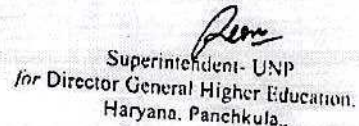 Superintendent- UNP
for Director General Higher Education,
Haryana, Panchkula..